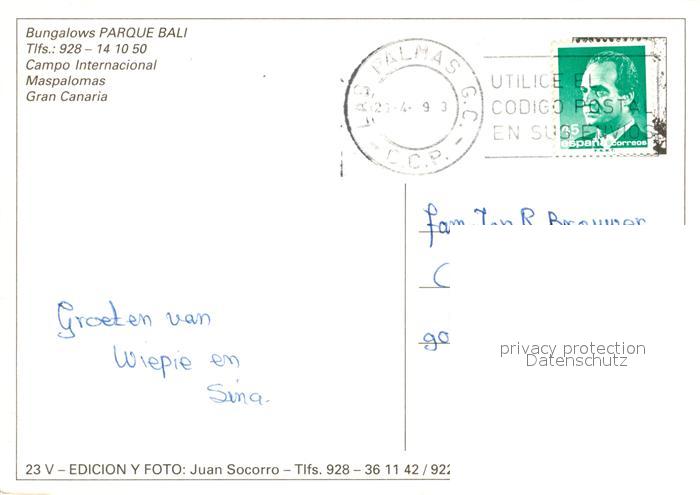 Bungalows PARQUE BALI
Tlfs.: 928 – 14 10 50
Campo Internacional
Maspalomas
Gran Canaria
LAS PALMAS G.C.
C.C.P.
UTILICE EL
CODIGO POSTAL
EN SUS ENVIOS
45
españa correos
fam. Jan R Brouwer
Groeten van
Wiepie en
Sina.
privacy protection
Datenschutz
23 V – EDICION Y FOTO: Juan Socorro – Tlfs. 928 – 36 11 42 / 922